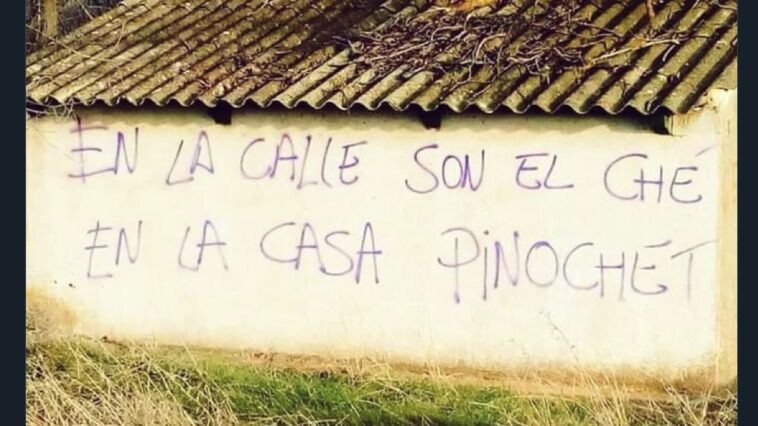 EN LA CALLE SON EL CHÉ
EN LA CASA PINOCHET